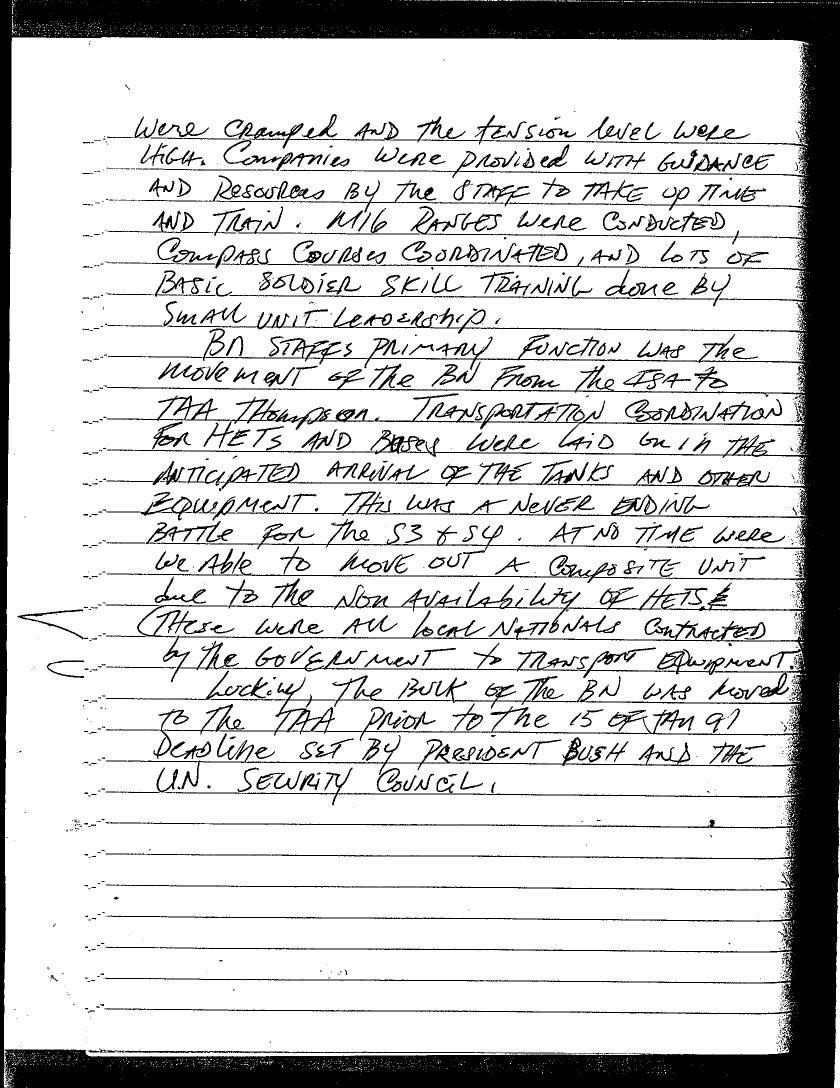 Were cramped AND the tension level were
HIGH. Companies were provided WITH GUIDANCE
AND Resources By the STAFF to TAKE up TIME
AND TRAIN. M16 RANGES were CONDUCTED,
COMPASS COURSES COORDINATED, AND LOTS OF
BASIC SOLDIER SKILL TRAINING done BY
SMALL UNIT LEADERSHIP.
BN STAFFS PRIMARY FUNCTION WAS The
movement of the BN From the ISA to
TAA Thompson. TRANSPORTATION COORDINATION
FOR HETs AND Buses were LAID ON IN THE
ANTICIPATED ARRIVAL OF THE TANKS AND OTHER
EQUIPMENT. THIS WAS A NEVER ENDING
BATTLE FOR The S3 & S4. AT NO TIME were
We Able to MOVE OUT A COMPOSITE UNIT
due to The NON AVAILABILITY OF HETS.
(THESE were ALL local NATIONALS CONTRACTED
by the GOVERNMENT to TRANSPORT EQUIPMENT.
Luckily, The BULK OF The BN WAS moved
to The TAA PRIOR to the 15 OF JAN 91
DEADLINE SET BY PRESIDENT BUSH AND THE
U.N. SECURITY COUNCIL.